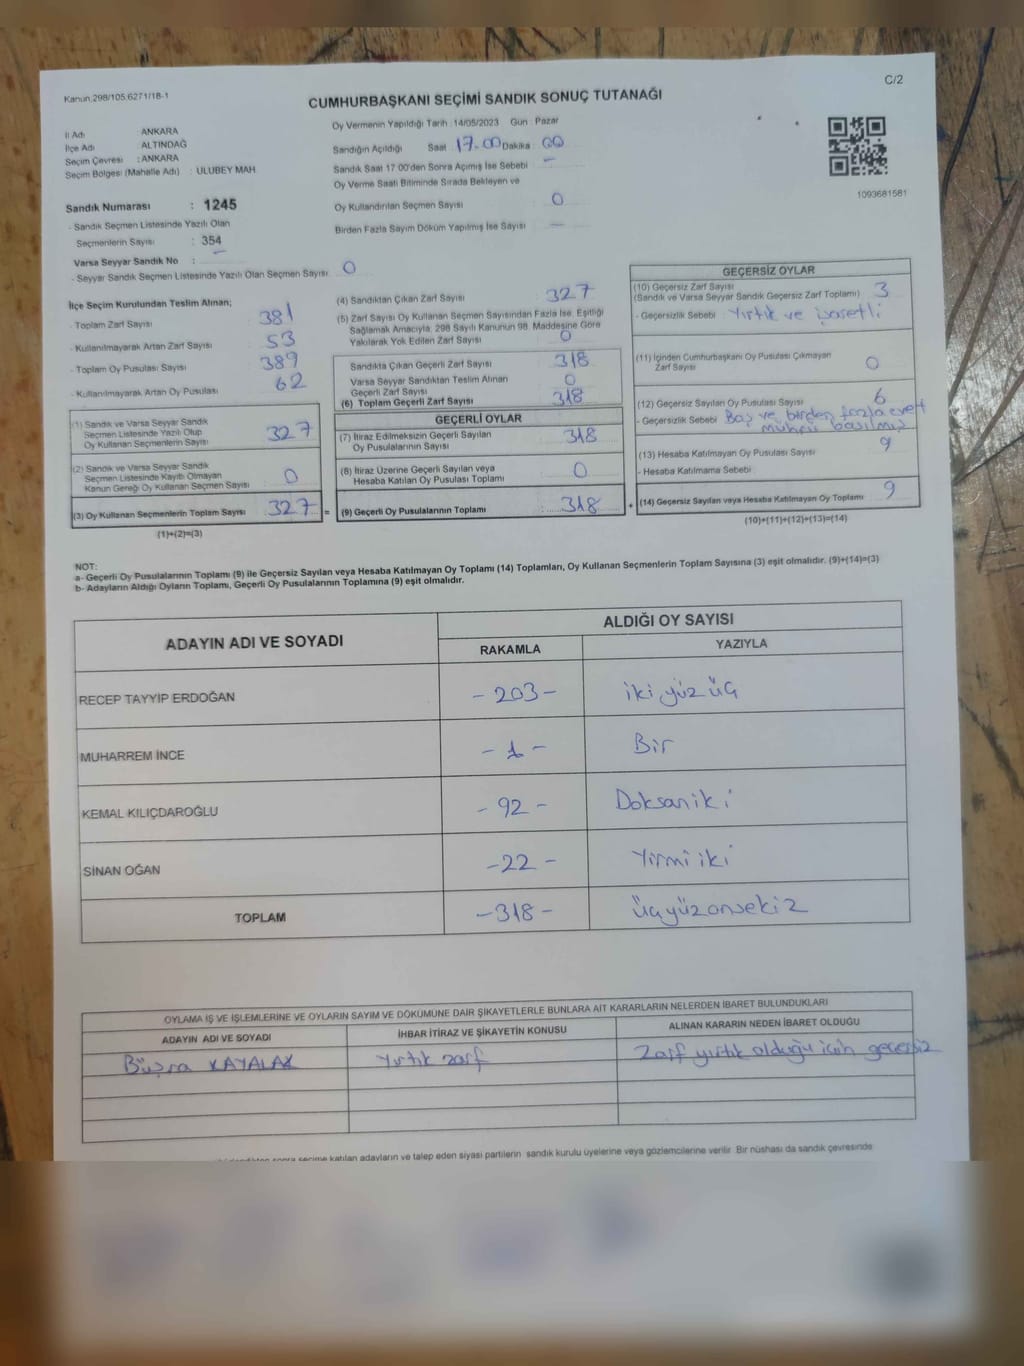 C/2
Kanun:298/105,6271/18-1
CUMHURBAŞKANI SEÇİMİ SANDIK SONUÇ TUTANAĞI
İl Adı ANKARA
İlçe Adı ALTINDAĞ
Seçim Çevresi : ANKARA
Seçim Bölgesi (Mahalle Adı) : ULUBEY MAH
Sandık Numarası : 1245
- Sandık Seçmen Listesinde Yazılı Olan
Seçmenlerin Sayısı : 354
Varsa Seyyar Sandık No : –
- Seyyar Sandık Seçmen Listesinde Yazılı Olan Seçmen Sayısı 0
Oy Vermenin Yapıldığı Tarih :14/05/2023 Gün : Pazar
Sandığın Açıldığı Saat 17.00 Dakika 00
Sandık Saat 17:00'den Sonra Açılmış İse Sebebi –
Oy Verme Saati Bitiminde Sırada Bekleyen ve
Oy Kullandırılan Seçmen Sayısı 0
Birden Fazla Sayım Döküm Yapılmış İse Sayısı –
1093681581
İlçe Seçim Kurulundan Teslim Alınan;
- Toplam Zarf Sayısı 381
- Kullanılmayarak Artan Zarf Sayısı 53
- Toplam Oy Pusulası Sayısı 389
- Kullanılmayarak Artan Oy Pusulası 62
(1) Sandık ve Varsa Seyyar Sandık
Seçmen Listesinde Yazılı Olup
Oy Kullanan Seçmenlerin Sayısı 327
(2) Sandık ve Varsa Seyyar Sandık
Seçmen Listesinde Kayıtlı Olmayan
Kanun Gereği Oy Kullanan Seçmen Sayısı 0
(3) Oy Kullanan Seçmenlerin Toplam Sayısı 327 =
(1)+(2)=(3)
(4) Sandıktan Çıkan Zarf Sayısı 327
(5) Zarf Sayısı Oy Kullanan Seçmen Sayısından Fazla İse, Eşitliği
Sağlamak Amacıyla, 298 Sayılı Kanunun 98. Maddesine Göre
Yakılarak Yok Edilen Zarf Sayısı 0
Sandıkta Çıkan Geçerli Zarf Sayısı 318
Varsa Seyyar Sandıktan Teslim Alınan
Geçerli Zarf Sayısı 0
(6) Toplam Geçerli Zarf Sayısı 318
GEÇERLİ OYLAR
(7) İtiraz Edilmeksizin Geçerli Sayılan
Oy Pusulalarının Sayısı 318
(8) İtiraz Üzerine Geçerli Sayılan veya
Hesaba Katılan Oy Pusulası Toplamı 0
(9) Geçerli Oy Pusulalarının Toplamı : 318 +
GEÇERSİZ OYLAR
(10) Geçersiz Zarf Sayısı 3
(Sandık ve Varsa Seyyar Sandık Geçersiz Zarf Toplamı)
- Geçersizlik Sebebi : Yırtık ve işaretli
(11) İçinden Cumhurbaşkanı Oy Pusulası Çıkmayan
Zarf Sayısı 0
(12) Geçersiz Sayılan Oy Pusulası Sayısı 6
- Geçersizlik Sebebi Boş ve birden fazla evet
mührü basılmış
(13) Hesaba Katılmayan Oy Pusulası Sayısı 9
- Hesaba Katılmama Sebebi
(14) Geçersiz Sayılan veya Hesaba Katılmayan Oy Toplamı 9
(10)+(11)+(12)+(13)=(14)
NOT:
a- Geçerli Oy Pusulalarının Toplamı (9) ile Geçersiz Sayılan veya Hesaba Katılmayan Oy Toplamı (14) Toplamları, Oy Kullanan Seçmenlerin Toplam Sayısına (3) eşit olmalıdır. (9)+(14)=(3)
b- Adayların Aldığı Oyların Toplamı, Geçerli Oy Pusulalarının Toplamına (9) eşit olmalıdır.
ADAYIN ADI VE SOYADI ALDIĞI OY SAYISI
RAKAMLA YAZIYLA
RECEP TAYYİP ERDOĞAN - 203 - iki yüz üç
MUHARREM İNCE - 1 - Bir
KEMAL KILIÇDAROĞLU - 92 - Doksan iki
SİNAN OĞAN - 22 - Yirmi iki
TOPLAM - 318 - Üçyüzonsekiz
OYLAMA İŞ VE İŞLEMLERİNE VE OYLARIN SAYIM VE DÖKÜMÜNE DAİR ŞİKAYETLERLE BUNLARA AİT KARARLARIN NELERDEN İBARET BULUNDUKLARI
ADAYIN ADI VE SOYADI İHBAR İTİRAZ VE ŞİKAYETİN KONUSU ALINAN KARARIN NEDEN İBARET OLDUĞU
Büşra KAYALAK Yırtık zarf Zarf yırtık olduğu için geçersiz
sonra seçime katılan adayların ve talep eden siyasi partilerin sandık kurulu üyelerine veya gözlemcilerine verilir. Bir nüshası da sandık çevresinde